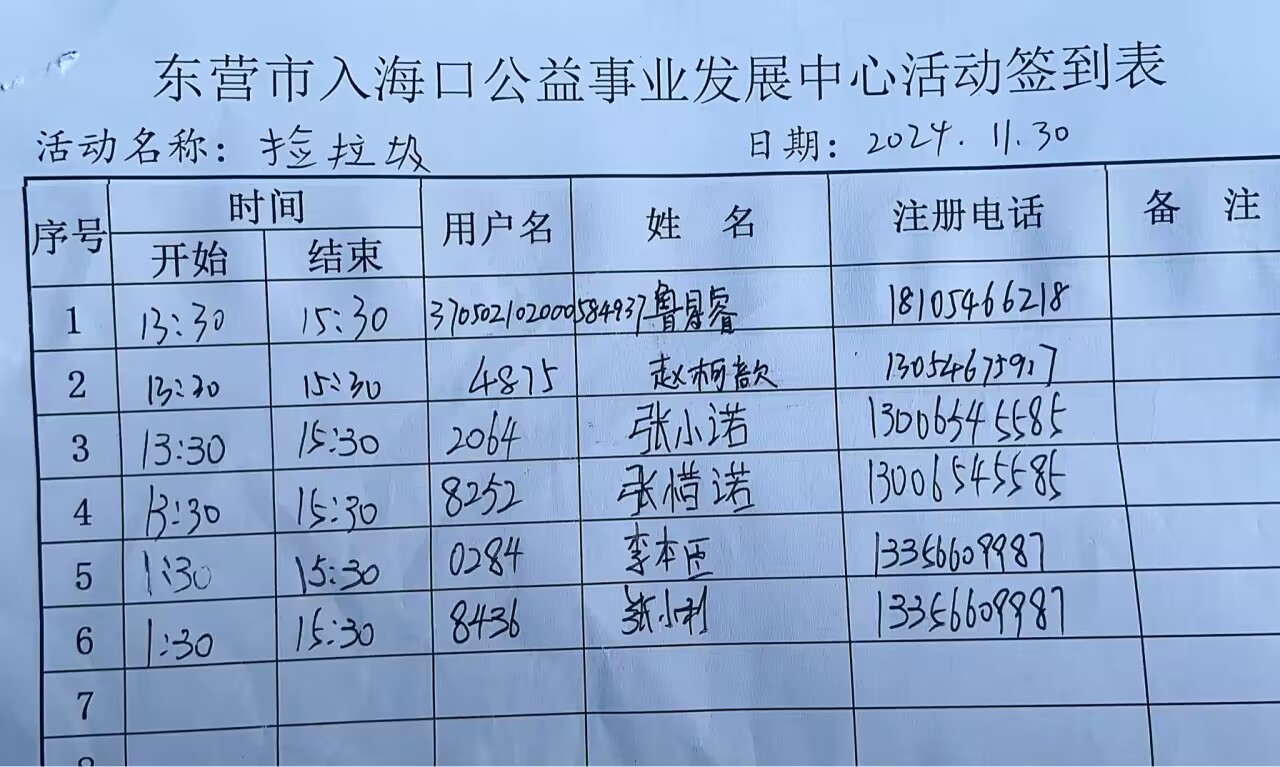 东营市入海口公益事业发展中心活动签到表
活动名称：捡拉圾 日期：2024.11.30
序号 时间 用户名 姓 名 注册电话 备 注
开始 结束
1 13:30 15:30 370502102000584937 鲁昱睿 18105466218
2 13:30 15:30 4875 赵柯歆 13054675917
3 13:30 15:30 2064 张小诺 13006545585
4 13:30 15:30 8252 张惜诺 13006545585
5 1:30 15:30 0284 李本臣 13356609987
6 1:30 15:30 8436 张小利 13356609987
7